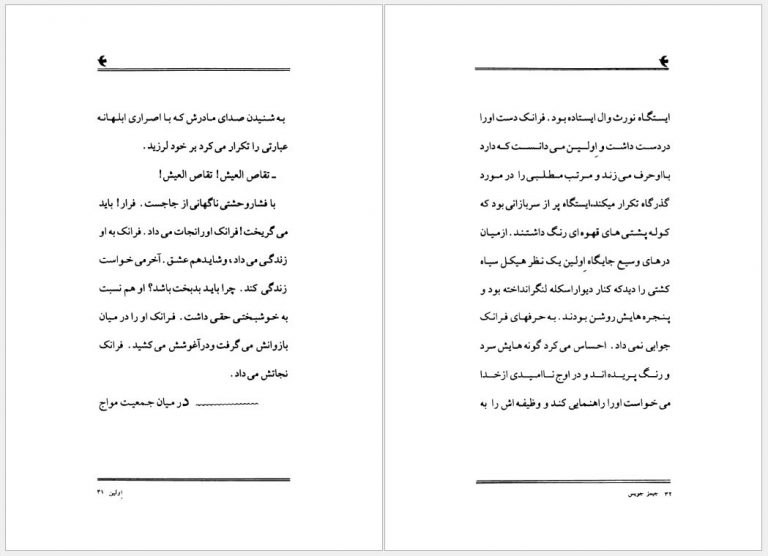 به شنیدن صدای مادرش که با اصراری ابلهانه
عبارتی را تکرار می کرد بر خود لرزید .
ـ تقاص العیش! تقاص العیش!
با فشاروحشتی ناگهانی از جاجست . فرار! باید
می گریخت! فرانک اورانجات می داد . فرانک به او
زندگی می داد ، وشایدهم عشق . آخرمی خواست
زندگی کند . چرا باید بدبخت باشد؟ او هم نسبت
به خوشبختی حقی داشت . فرانک او را در میان
بازوانش می گرفت ودرآغوشش می کشید . فرانک
نجاتش می داد .
در میان جمعیت مواج
اِولین ۳۱
ایستگاه نورث وال ایستاده بود . فرانک دست اورا
دردست داشت و اِولین می دانست که دارد
بااوحرف می زند و مرتب مطلبی را در مورد
گذرگاه تکرار میکند،ایستگاه پر از سربازانی بود که
کوله پشتی های قهوه ای رنگ داشتند . ازمیان
درهای وسیع جایگاه اِولین یک نظر هیکل سیاه
کشتی را دیدکه کنار دیواراسکله لنگرانداخته بود و
پنجره هایش روشن بودند . به حرفهای فرانک
جوابی نمی داد . احساس می کرد گونه هایش سرد
و رنگ پریده اند و در اوج ناامیدی ازخدا
می خواست اورا راهنمایی کند و وظیفه اش را به
۳۲ جیمز جویس